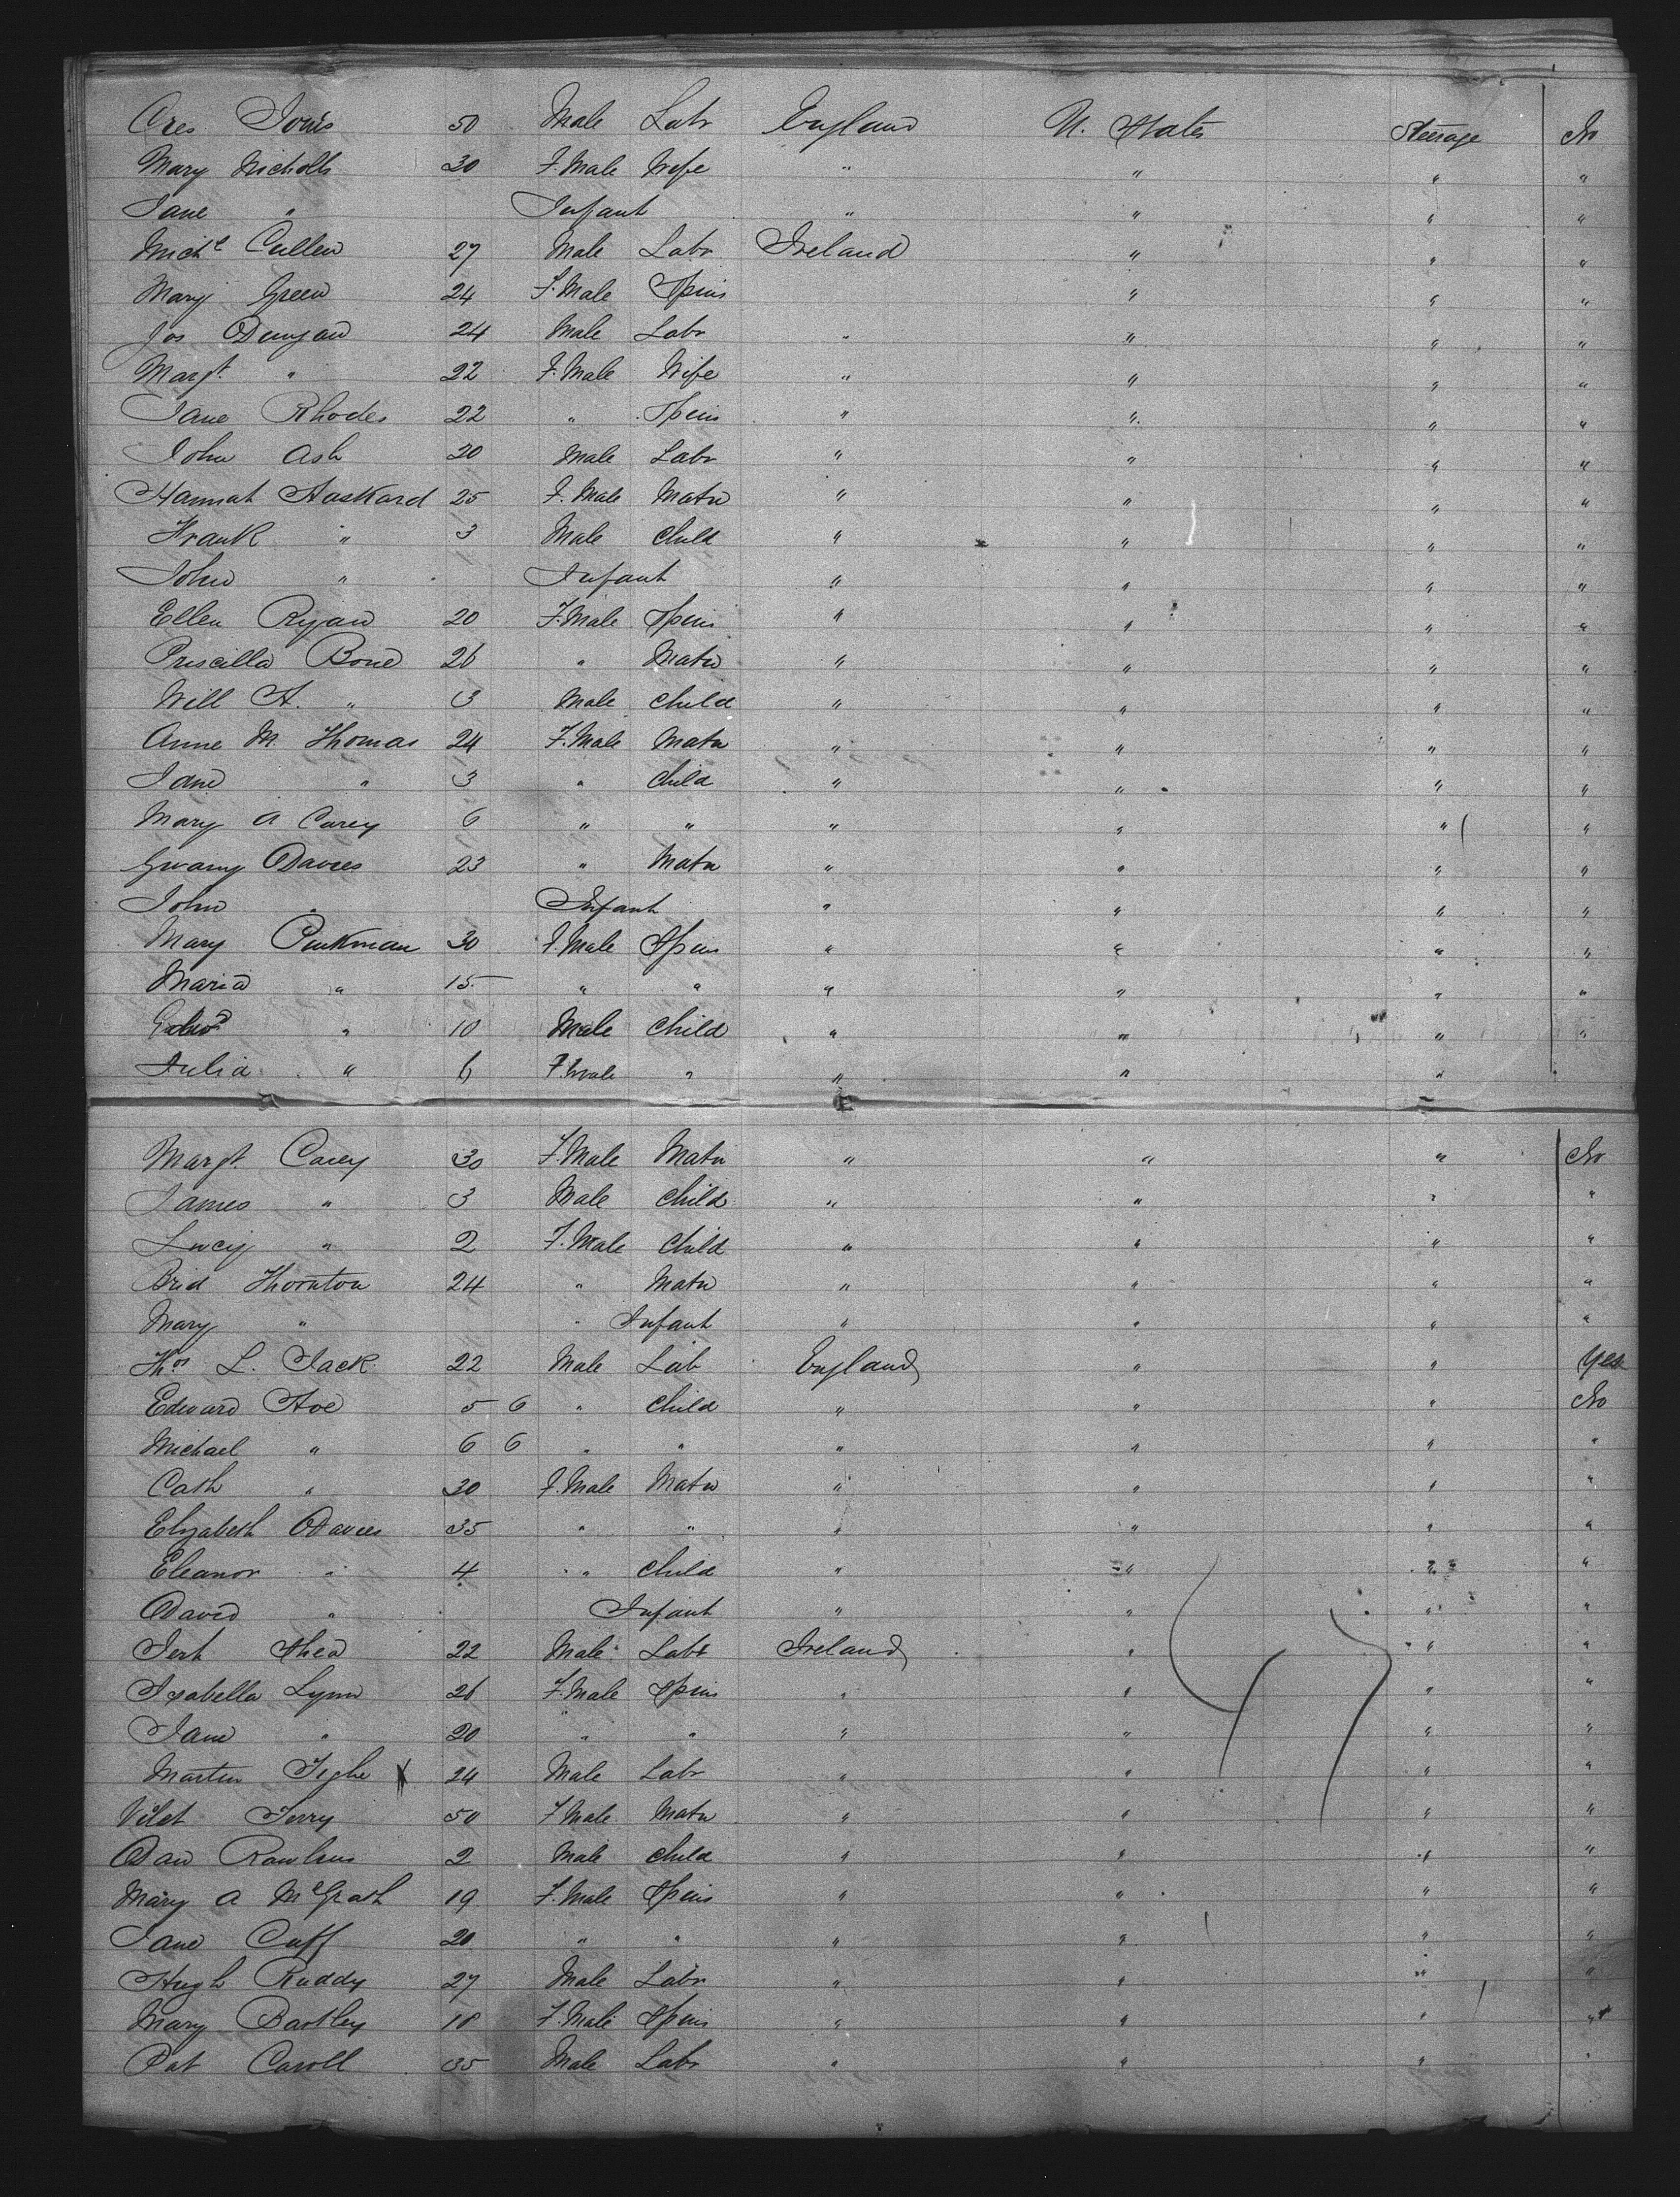 Ores Jones 50 Male Labr England U. States Steerage No
Mary Nicholls 30 F.Male Wife " " " "
Jane " Infant " " " "
Michl Cullen 27 Male Labr Ireland " " "
Mary Green 24 F.Male Spins " " "
Jos Dungan 24 Male Labr " " " "
Margt " 22 F.Male Wife " " " "
Jane Rhodes 22 " Spins " " " "
John Ash 20 Male Labr " " " "
Hannah Haskard 25 F.Male Matn " " " "
Frank " 3 Male Child " " " "
John " Infant " " " "
Ellen Ryan 20 F.Male Spins " " " "
Priscilla Bone 26 " Matn " " " "
Will H. " 3 Male Child " " " "
Anne M. Thomas 24 F.Male Matn " " " "
Jane " 3 " Child " " " "
Mary A Carey 6 " " " " " "
Gwany Davies 23 " Matn " " " "
John " Infant " " " "
Mary Pinkman 30 F.Male Spins " " " "
Maria " 15 " " " " " "
Edwd " 10 Male Child " " " "
Julia " 6 F.male " " " "
Margt Casey 30 F.Male Matn " " " No
James " 3 Male Child " " " "
Lucy " 2 F.Male Child " " " "
Brid Thornton 24 " Matn " " " "
Mary " " Infant " " " "
Thos L. Jack 22 Male Lab England " " Yes
Edward Hoe 5 6 " Child " " " No
Michael " 6 6 " " " " " "
Cath " 30 F.Male Matn " " " "
Elizabeth Davies 35 " " " " " "
Eleanor " 4 " Child " " " "
David " Infant " " " "
Jerh Shea 22 Male Labr Ireland " " "
Isabella Lynn 26 F.Male Spins " " " "
Jane " 20 " " " " " "
Martin Tighe X 24 Male Labr " " " "
Vilet Terry 50 F.Male Matn " " " "
Dan Rawlins 2 Male Child " " " "
Mary A McGrath 19 F.Male Spins " " " "
Jane Cuff 20 " " " " " "
Hugh Ruddy 27 Male Labr " " " "
Mary Bartley 18 F.Male Spins " " " "
Pat Caroll 35 Male Labr " " " "